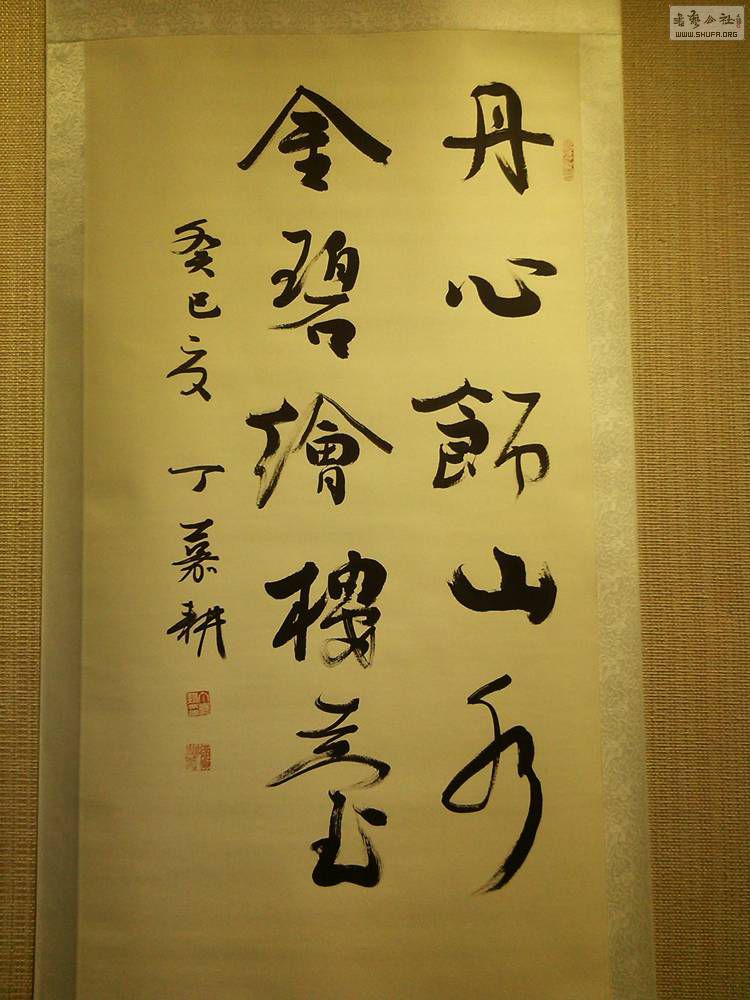 丹心飾山水
金碧繪樓臺
癸巳夏 丁慕耕
書藝公社
WWW.SHUFA.ORG